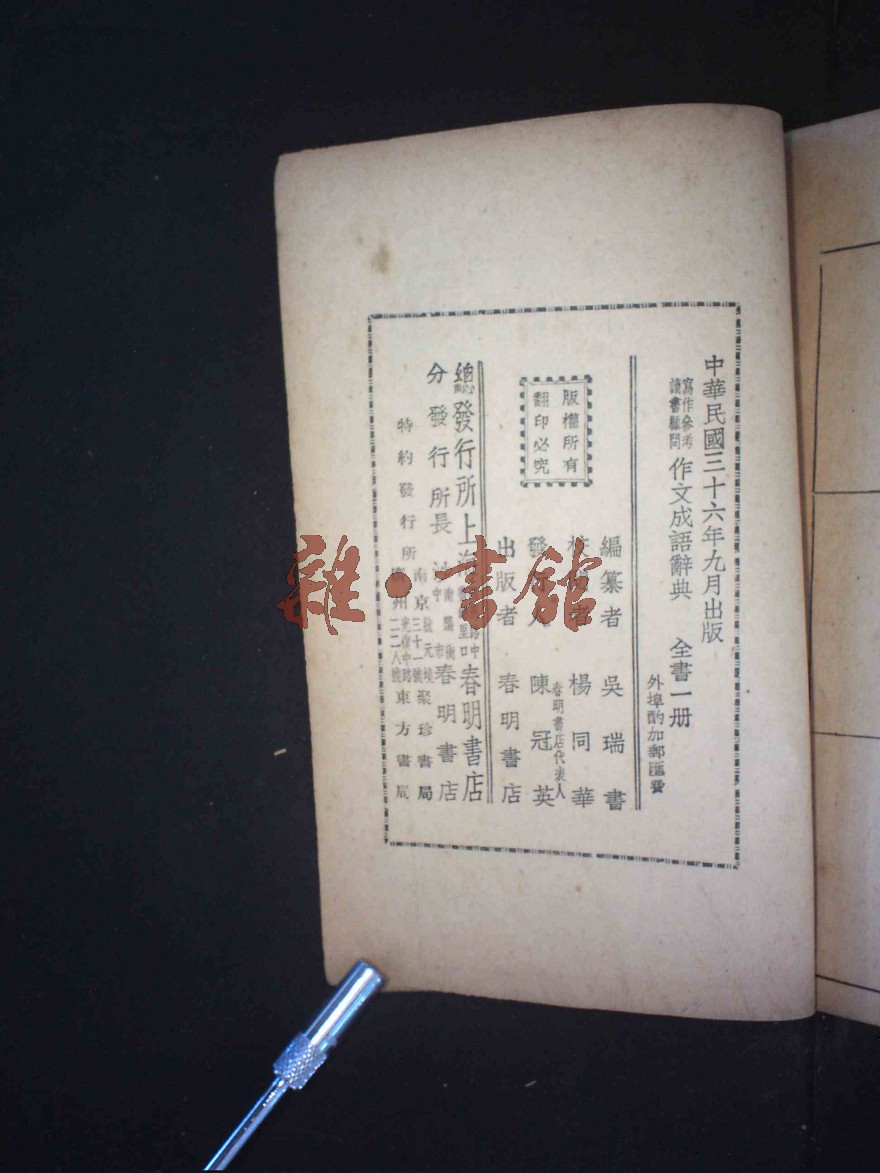 中華民國三十六年九月出版
寫作參考
讀書顧問
作文成語辭典 全書一册
外埠酌加郵匯費
版權所有
翻印必究
編纂者 吳瑞書
者 楊同華
發行人 春明書店代表人 陳冠英
出版者 春明書店
總發行所 上海 春明書店
分發行所 長沙 南陽街 中 市 春明書店
特約發行所
南京 三十一號 聚珍書局
廣州 光復中路 二二八號 東方書局
雜·書館